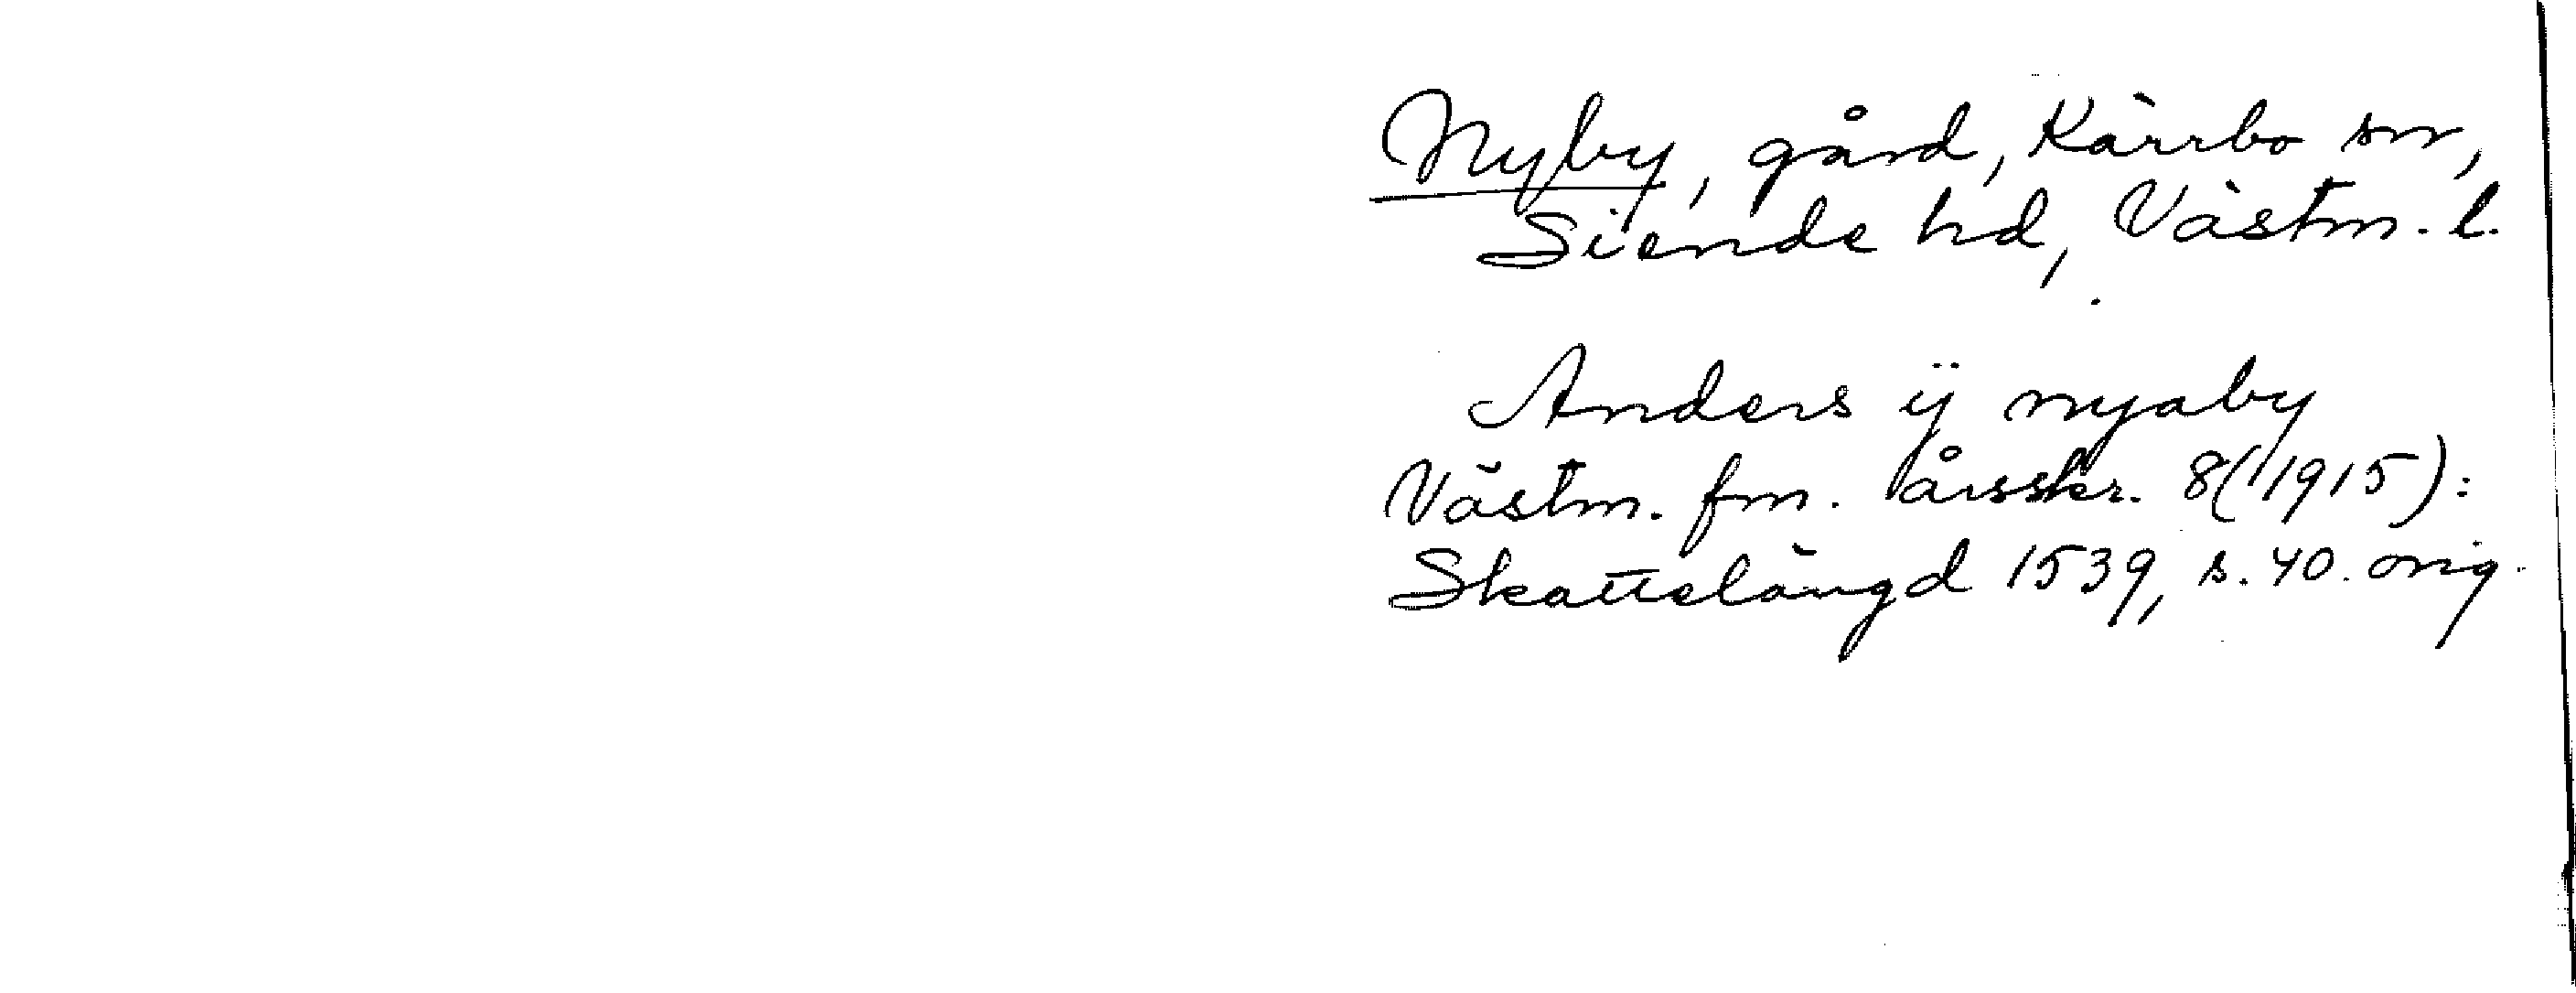 Nyby, gård, Kärrbo sn,
Siende hd, Västm. l.
Anders ÿ nyaby
Västm. fm. årsskr. 8(1915):
Skattelängd 1539, s. 40. orig.